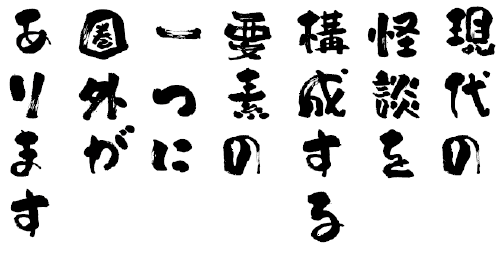 現代の
怪談を
構成する
要素の
一つに
圏外が
あります